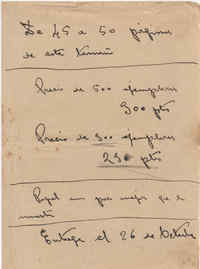 De 45 a 50 páginas
de este tamaño
Precio de 500 ejemplares
300 pts
Precio de 300 ejemplares
250 pts
Papel un poco mejor que la
muestra
Entrega el 26 de Octubre